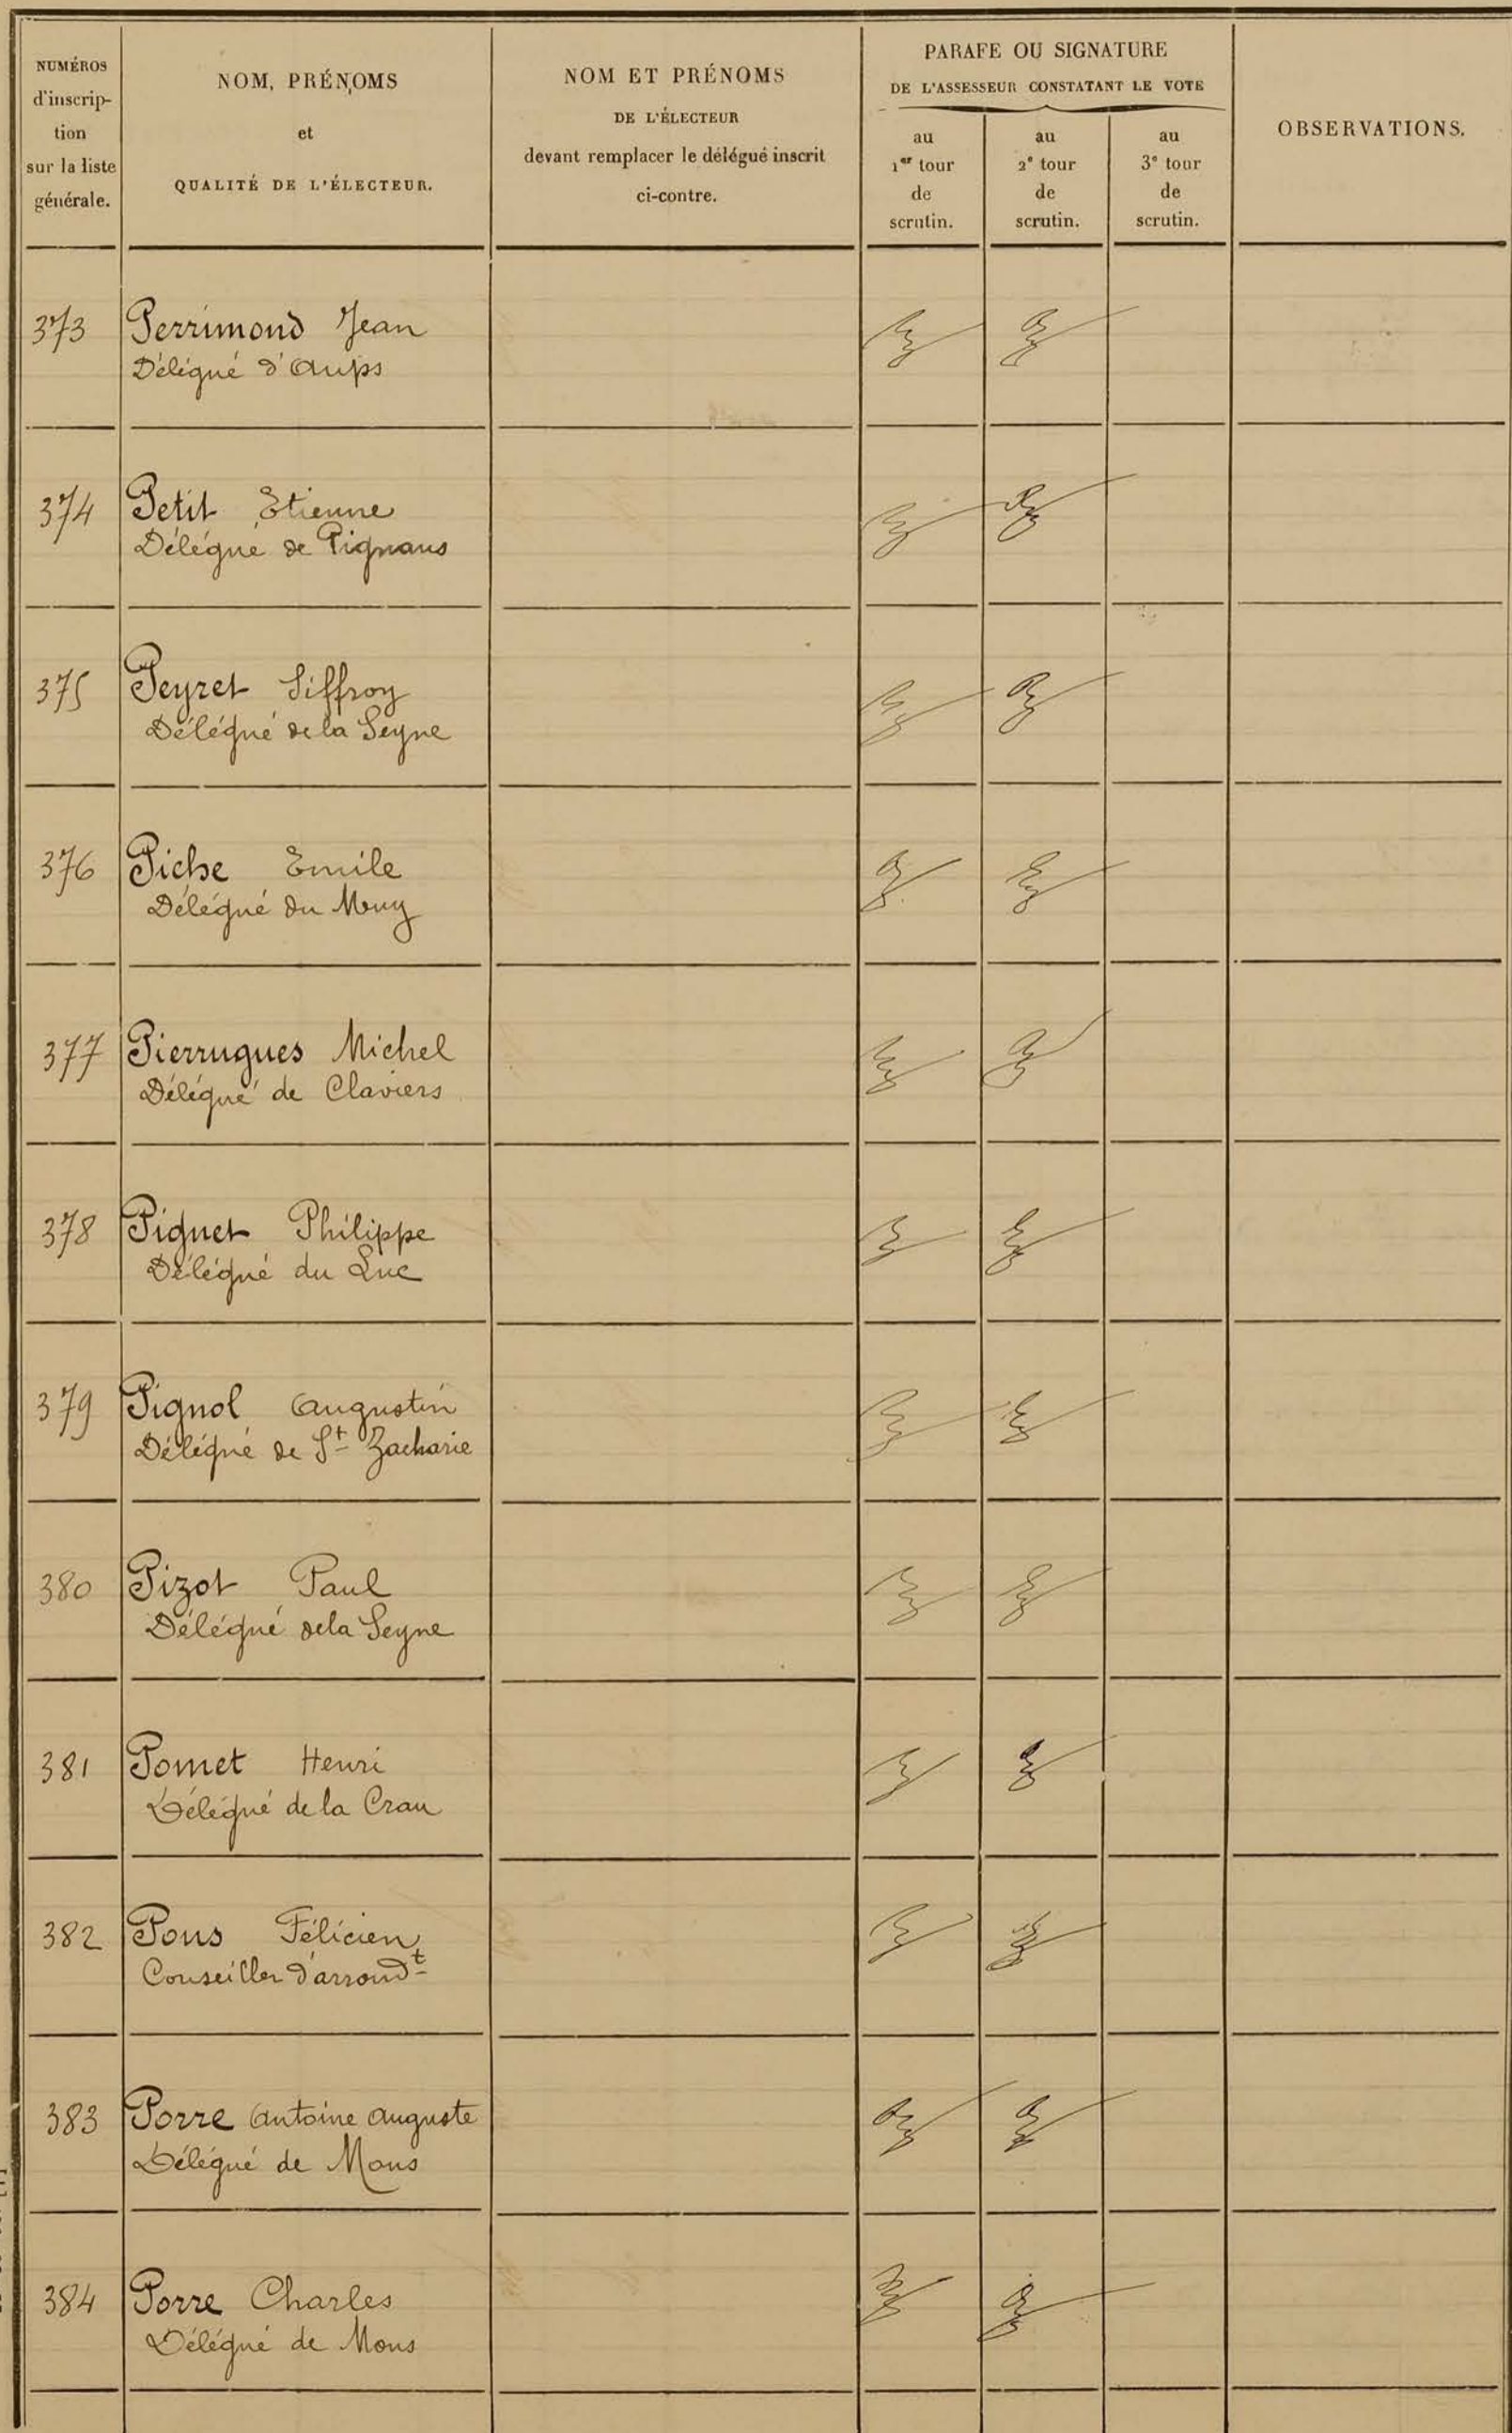 NUMÉROS
d'inscrip-
tion
sur la liste
générale.
NOM, PRÉNOMS
et
QUALITÉ DE L'ÉLECTEUR.
NOM ET PRÉNOMS
DE L'ÉLECTEUR
devant remplacer le délégué inscrit
ci-contre.
PARAFE OU SIGNATURE
DE L'ASSESSEUR CONSTATANT LE VOTE
au
1er tour
de
scrutin.
au
2e tour
de
scrutin.
au
3e tour
de
scrutin.
OBSERVATIONS.
373 Perrimond Jean
Délégué d'Aups
374 Petit Etienne
Délégué de Pignans
375 Peyret Siffroy
Délégué de la Seyne
376 Piche Emile
Délégué du Muy
377 Pierrugues Michel
Délégué de Claviers
378 Pignet Philippe
Délégué du Luc
379 Pignol Augustin
Délégué de St Zacharie
380 Pizot Paul
Délégué de la Seyne
381 Pomet Henri
Délégué de la Crau
382 Pons Félicien
Conseiller d'arrondt
383 Porre Antoine Auguste
Délégué de Mons
384 Porre Charles
Délégué de Mons